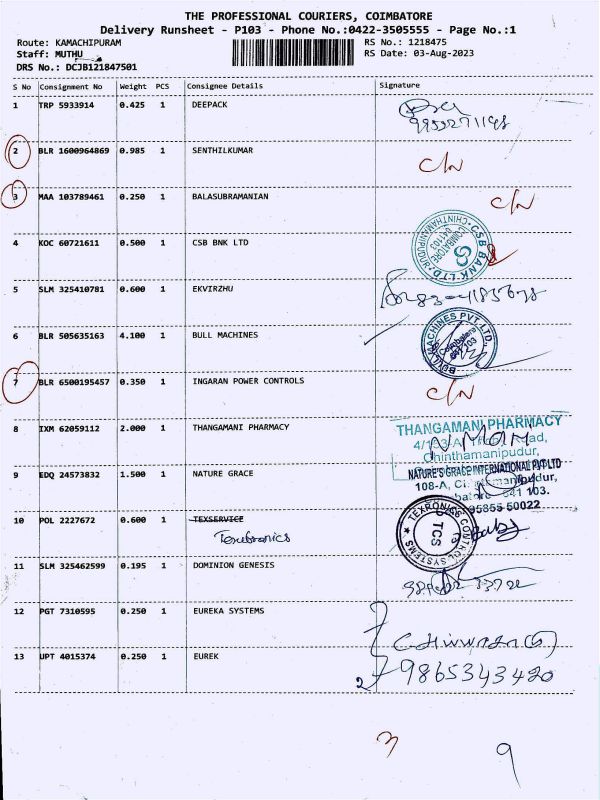 THE PROFESSIONAL COURIERS, COIMBATORE
Delivery Runsheet - P103 - Phone No.:0422-3505555 - Page No.:1
Route: KAMACHIPURAM RS No.: 1218475
Staff: MUTHU RS Date: 03-Aug-2023
DRS No.: DCJB121847501
S No Consignment No Weight PCS Consignee Details Signature
1 TRP 5933914 0.425 1 DEEPACK
2 BLR 1600964869 0.985 1 SENTHILKUMAR C/N
3 MAA 103789461 0.250 1 BALASUBRAMANIAN C/N
4 KOC 60721611 0.500 1 CSB BNK LTD
CSB BANK LTD. CHINTHAMANIPUDUR
COIMBATORE
641103
5 SLM 325410781 0.600 1 EKVIRZHU
6 BLR 505635163 4.100 1 BULL MACHINES
BULL MACHINES PVT. LTD.
Coimbatore
641 103
7 BLR 6500195457 0.350 1 INGARAN POWER CONTROLS C/N
8 IXM 62059112 2.000 1 THANGAMANI PHARMACY
THANGAMANI PHARMACY
Chinthamanipudur,
9 EDQ 24573832 1.500 1 NATURE GRACE
NATURE'S GRACE INTERNATIONAL PVT LTD
108-A,
641 103.
95855 50022
10 POL 2227672 0.600 1 TEXSERVICE
TEXRONICS CONTROL SYSTEMS
TCS
11 SLM 325462599 0.195 1 DOMINION GENESIS
12 PGT 7310595 0.250 1 EUREKA SYSTEMS
13 UPT 4015374 0.250 1 EUREK
2 9865343420
3 9